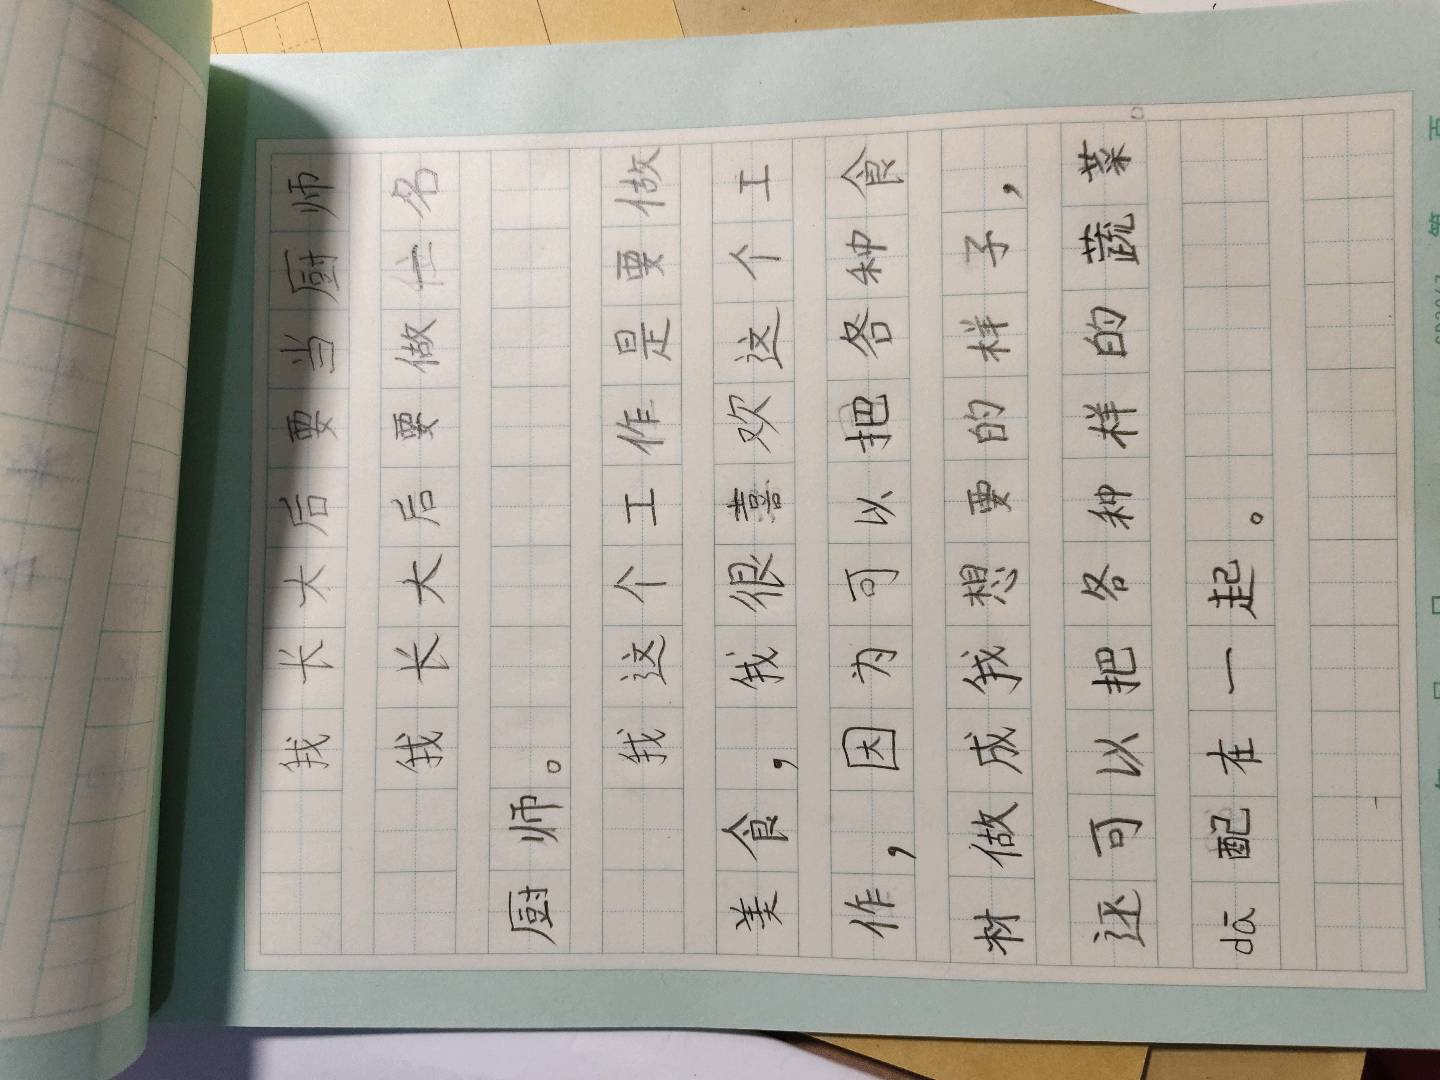 我长大后要当厨师
我长大后要做仕名
厨师。
我这个工作是要做
美食，我很喜欢这个工
作，因为可以把各种食
材做成我想要的样子，
还可以把各种样的蔬菜。
dā配在一起。